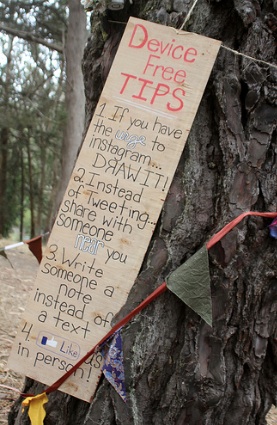 Device
Free
TIPS
1. If you have
the urge to
instagram...
DRAW IT!
2. Instead
of tweeting...
share with
someone
near you
3. Write
someone a
note
instead of
a text
4. Like
in person!